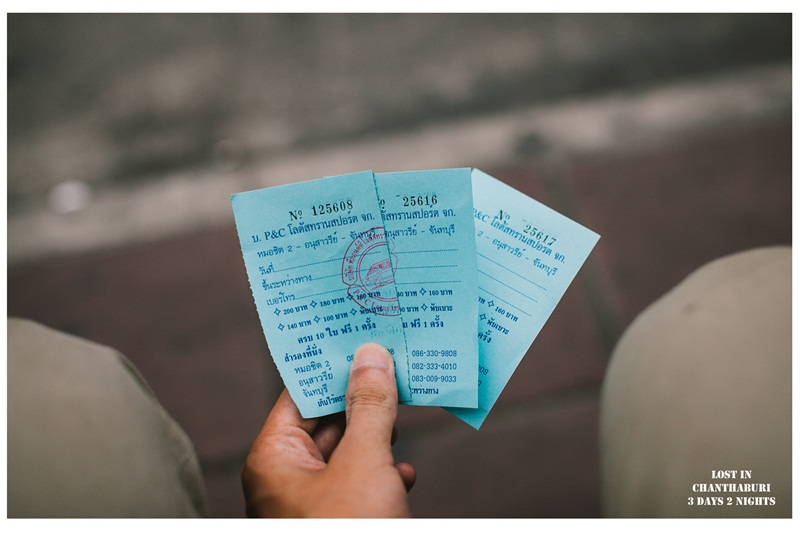 Nº 125608
บ. P&C โลตัสทรานสปอร์ต จก.
หมอชิต 2 - อนุสาวรีย์ - จันทบุรี
วันที่
ขึ้นระหว่างทาง
เบอร์โทร
200 บาท 180 บาท
140 บาท 100 บาท
ครบ 10 ใบ ฟรี 1 ครั้ง
สำรองที่นั่ง
หมอชิต 2
อนุสาวรีย์
จันทบุรี
25616
ทรานสปอร์ต จก.
อนุสาวรีย์ - จันทบุรี
180 บาท 160 บาท
พับเบาะ
ฟรี 1 ครั้ง
086-330-9808
082-333-4010
083-009-9033
Nº 25617
P&C โลตัสทรานสปอร์ต จก.
อนุสาวรีย์ - จันทบุรี
160 บาท
พับเบาะ
LOST IN
CHANTHABURI
3 DAYS 2 NIGHTS